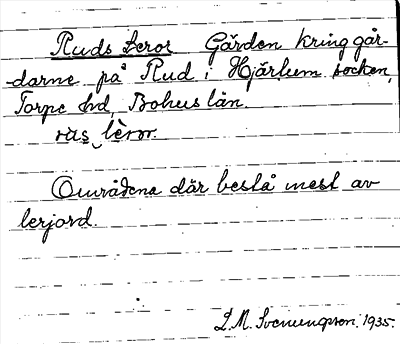 Ruds Leror Gärden kring går-
-darne på Rud i Hjärtum socken,
Torpe hd, Bohus län.
rùs lèror.
Områdena där bestå mest av
lerjord.
L.M. Svenungsson. 1935.